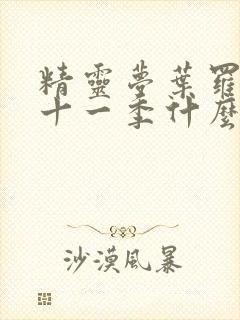 精靈夢葉羅
十一季什麼
沙漠風暴